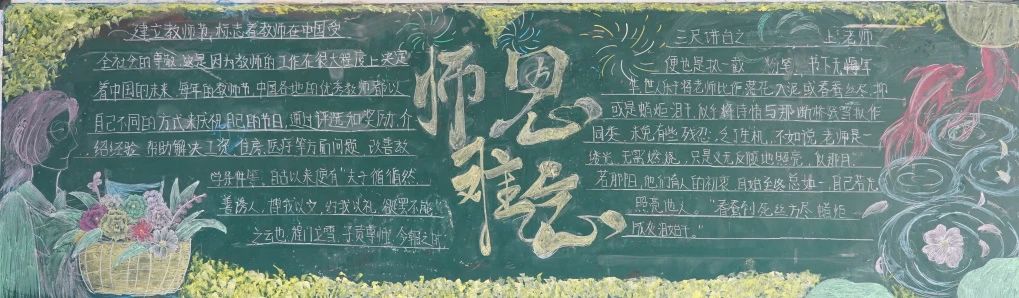 建立教师节,标志着教师在中国受
全社会的尊敬。这是因为教师的工作在很大程度上决定
着中国的未来。每年的教师节,中国各地的优秀教师都以
自己不同的方式来庆祝自己的节日,通过评选和奖励,介
绍经验,帮助解决工资、住房、医疗等方面问题,改善教
学条件等。自古以来便有"夫子循循然
善诱人,博我以文,约我以礼,欲罢不能"
之云也,程门立雪,子贡尊师,今朝之时
师恩
难忘
三尺讲台之 上,老师
便也是执一截 粉笔,书下无悔年
华。世人时将老师比作落花入泥或春蚕丝尽,抑
或是蜡炬泪干,似乎将诗情与那断桥残雪
同奏,未免有些残忍,乏了生机,不如说,老师是一
终尽,无需燃烧,只是义无反顾地照亮,似那月。
若那阳,他们育人的初衷,自始至终总如一,自己
照亮他人。"春蚕到死丝方尽,蜡炬
成灰泪始干。"